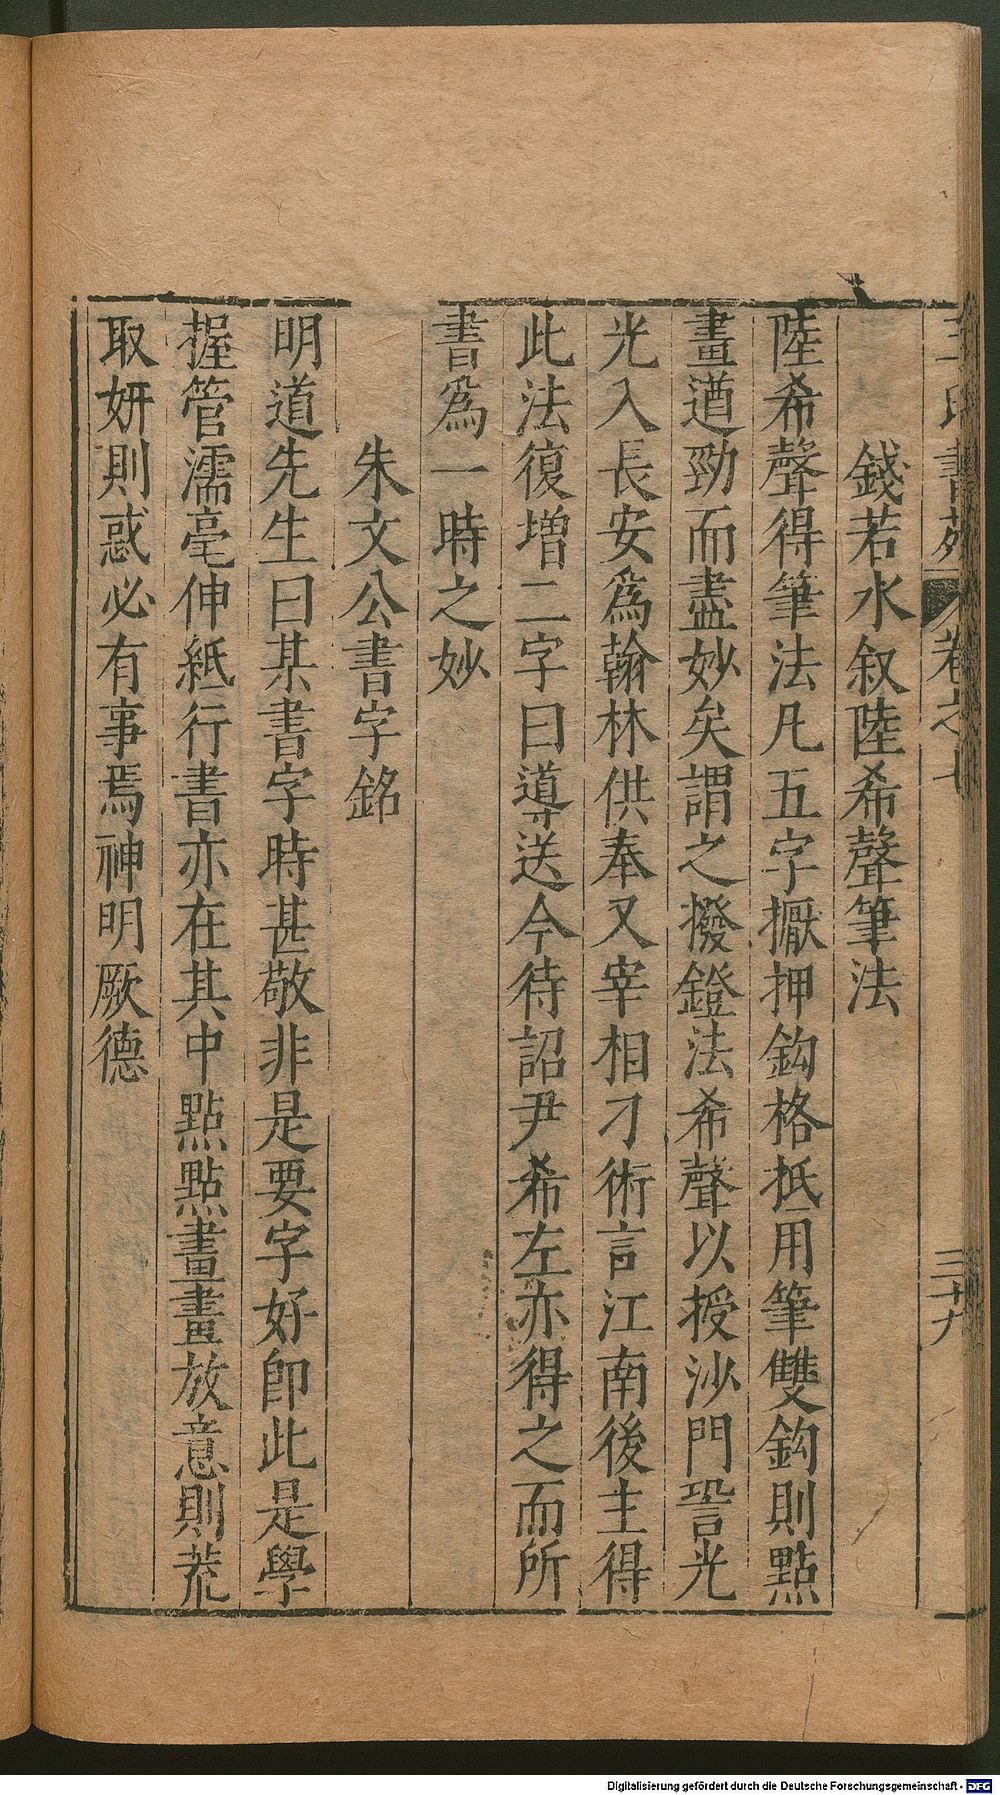 王氏書苑 卷之七 三十九
錢若水叙陸希聲筆法
陸希聲得筆法凡五字擫押鈎格抵用筆雙鈎則點
畫遒勁而盡妙矣謂之撥鐙法希聲以授沙門䛒光
光入長安爲翰林供奉又宰相刁術言江南後主得
此法復增二字曰導送今待詔尹希左亦得之而所
書爲一時之妙
朱文公書字銘
明道先生曰某書字時甚敬非是要字好卽此是學
握管濡毫伸紙行書亦在其中點點畫畫放意則荒
取妍則惑必有事焉神明厥德
Digitalisierung gefördert durch die Deutsche Forschungsgemeinschaft - DFG